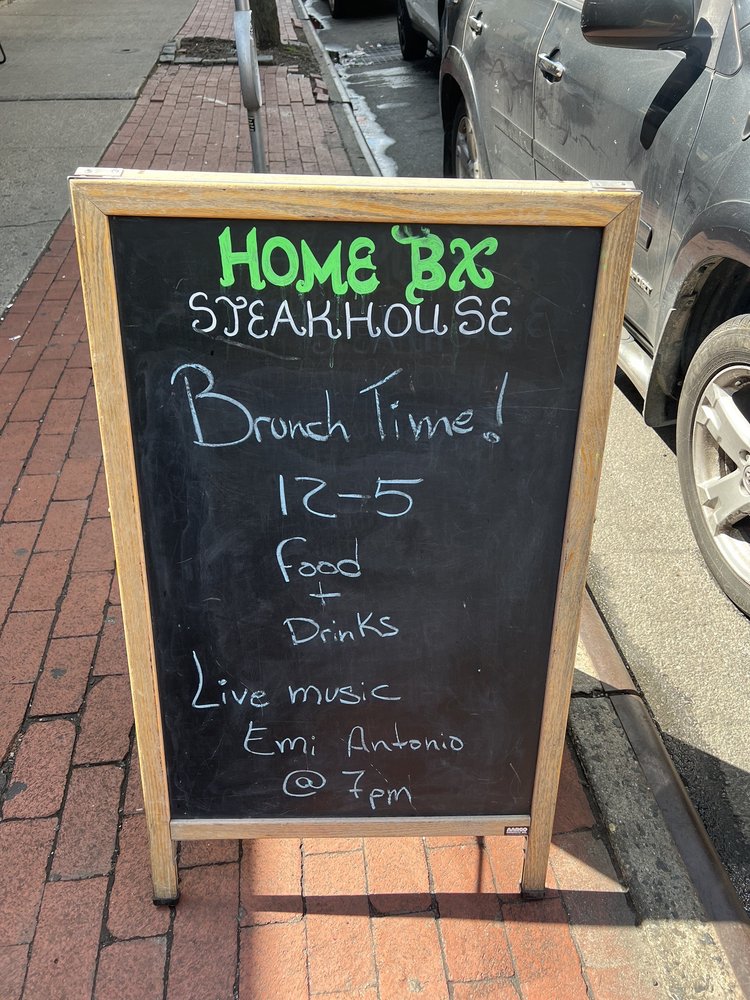 HOME BX
STEAKHOUSE
Brunch Time!
12-5
food
+
Drinks
Live music
Emi Antonio
@ 7pm